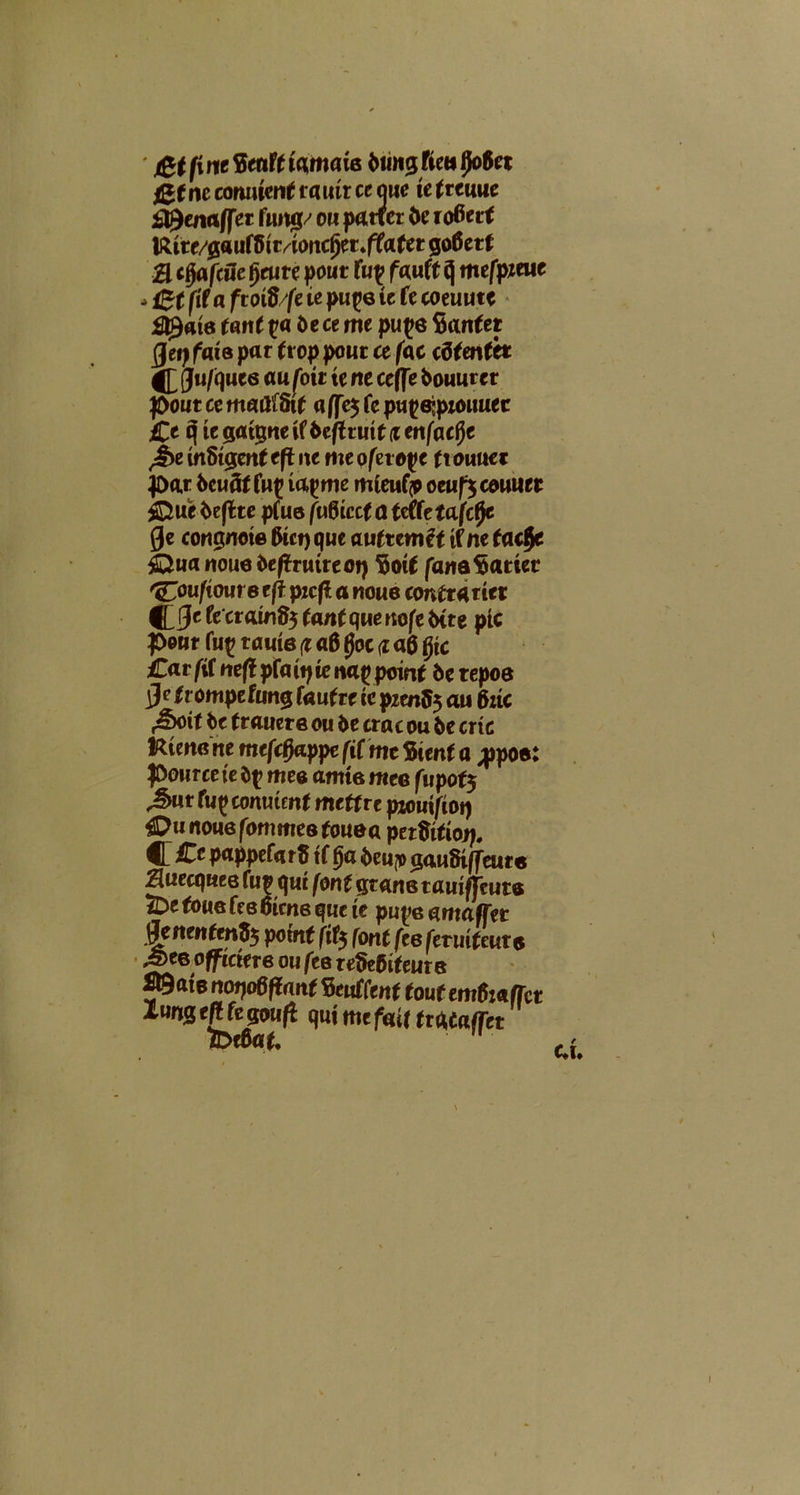 Et si ne veult iamais dung lieu hober
Et ne conuient rauir ce que ie treuue
Menasser lung/ ou parler de robert
Rire/gaudir/ioncher.flater gobert
A chascũe heure pour luy fault q̃ mespreue
Et sil a froid/se ie puys ie le coeuure
Mais tant ya de ce me puys vanter
Jen fais par trop pour ce sac cõtenter
¶ Jusques au soir ie ne cesse douurer
Pour ce mauldit assez le puys prouuer
Ce q̃ ie gaigne il destruit ⁊ ensache
Se indigent est ne me oseroye trouuer
Par deuãt luy iayme mieulx oeufz couuer
Que destre plus subiect a telle tasche
Je congnois bien que autremẽt il ne tache
Qua nous destruire on voit sans varier
Tousiours est prest a nous contrarier
¶ Je le craindz tant que nose dire pic
Pour luy rauis ⁊ ab hoc ⁊ ab hic
Car sil nest plain ie nay point de repos
Je trompe lung lautre ie prendz au bric
Soit de trauers ou de crac ou de cric
Riens ne meschappe sil me vient a ꝓpos:
Pource ie dy mes amis mes supotz
Sur luy conuient mettre prouision
Ou nous sommes tous a perdition.
¶ Ce pappelard il ha deux gaudisseurs
Auecques luy qui sont grans rauisseurs
De tous les biens que ie puys amasser
Je nentendz point silz sont ses seruiteurs
Ses officiers ou ses redebiteurs
Mais nonobstant veullent tout embrasser
Lung est le goust qui me fait tracasser
Debat. c.i.